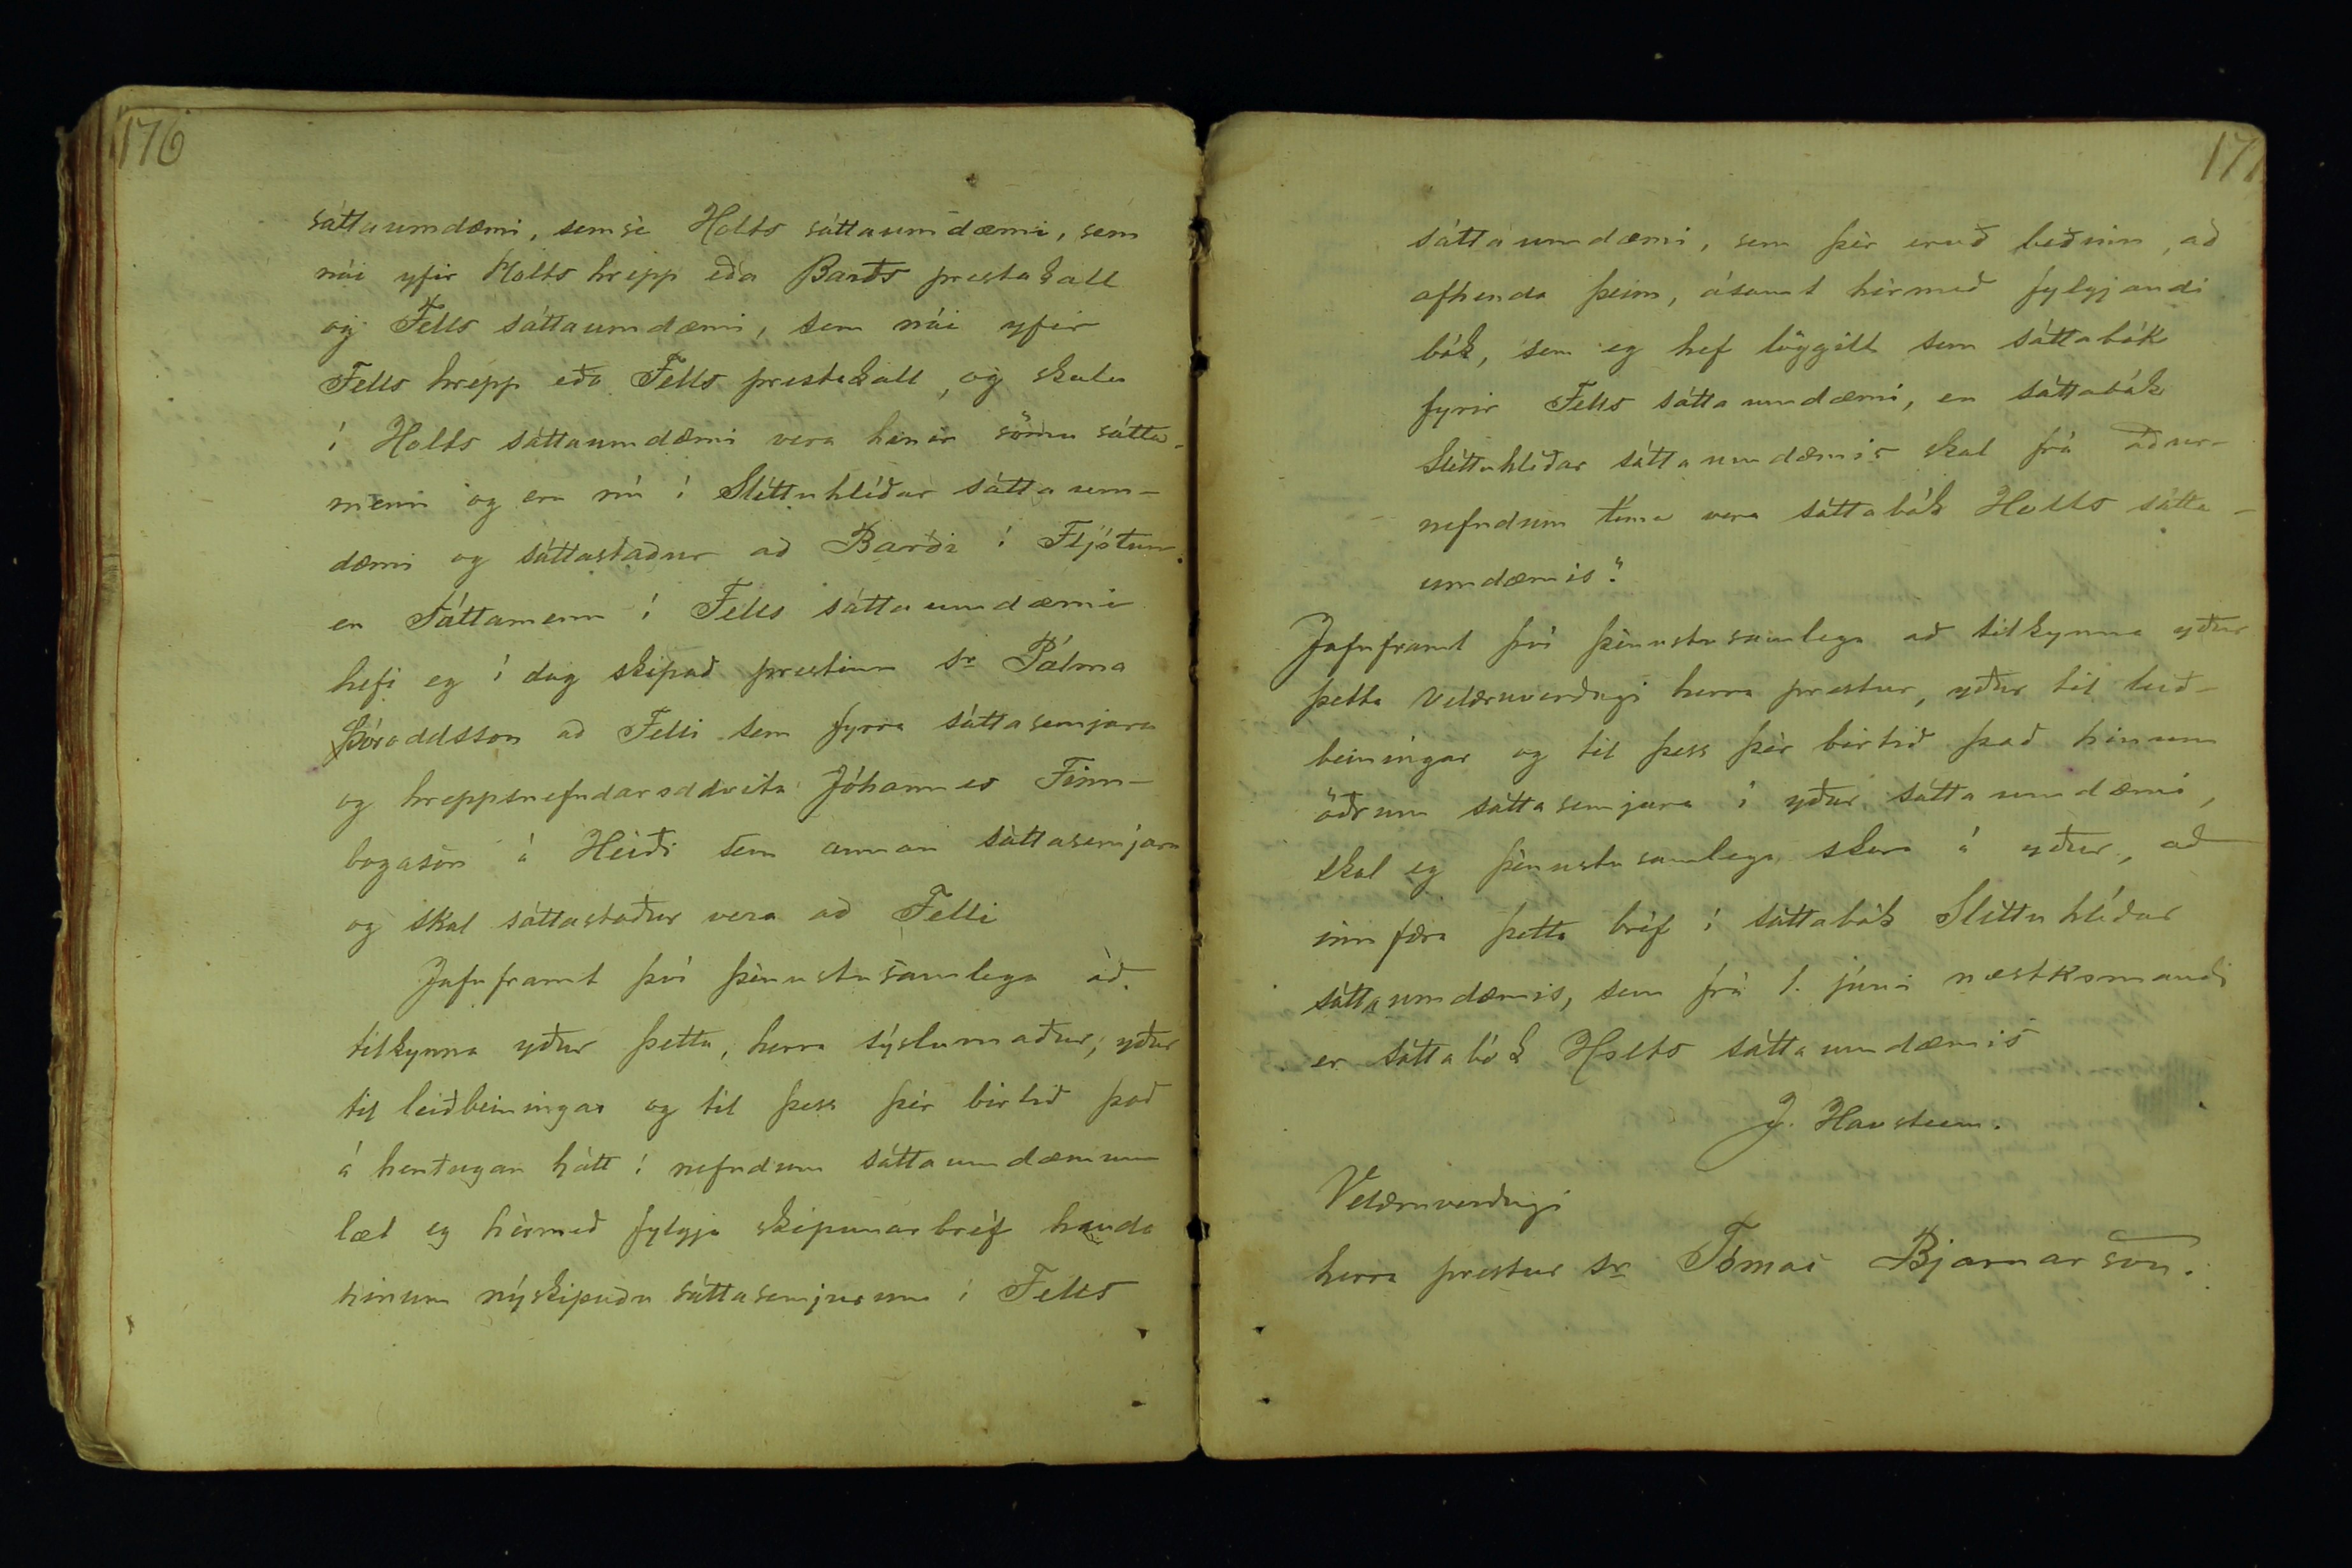 176
sáttaumdæmi, sem sè Holts sáttaumdæmi, sem
nái yfir Holts hrepp eða Barðs prestakall
og Fells sáttaumdæmi, sem nái yfir
Fells hrepp eða Fells prestakall, og skulu
í Holts sáttaumdæmi vera hinir sömu sátta-
menn og eru nú í Slèttuhlíðar sáttaum-
dæmi og sáttastaður að Barði í Fljótum.
en Sáttamenn í Fells sáttaumdæmi
hefi eg í dag skipað prestinn sr Pálma
Þóroddsson að Felli sem fyrra sáttasemjara
og hreppsnefndaroddvita Jóhannes Finn-
bogason á Heiði sem annan sáttasemjara
og skal sáttastaður vera að Felli
Jafnframt því þènustusamlega að
tilkynna yður þetta, herra sýslumaður, yður
til leiðbeiningar og til þess þèr birtið það
á hentugan hátt í nefndum sáttaumdæmum
læt eg hèrmeð fylgja skipunarbrèf handa
hinum nýskipuðu sáttasemjurum í Fells
177
sáttaumdæmi, sem þèr eruð beðinn, að
afhenda þeim, ásamt hèrmeð fylgjandi
bók, sem eg hef löggilt sem sáttabók
fyrir Fells sáttaumdæmi, en sáttabók
Slèttuhlíðar sáttaumdæmis skal frá áður-
nefndum tíma vera sáttabók Holts sátta-
umdæmis."
Jafnframt því þènustusamlega að tilkynna yður
þetta velæruverðugi herra prestur, yður til leið-
beiningar og til þess þèr birtið það hinum
öðrum sáttasemjara í yður sáttaumdæmi,
skal eg þènustusamlega skora á yður, að
innfæra þetta brèf í sáttabók Slèttuhlíðar
sáttaumdæmis, sem frá 1. júni næstkomandi
er sáttabók Holts sáttaumdæmis
J. Havsteen.
Velæruverðugi
herra prestur sr Tómas Bjarnarson.